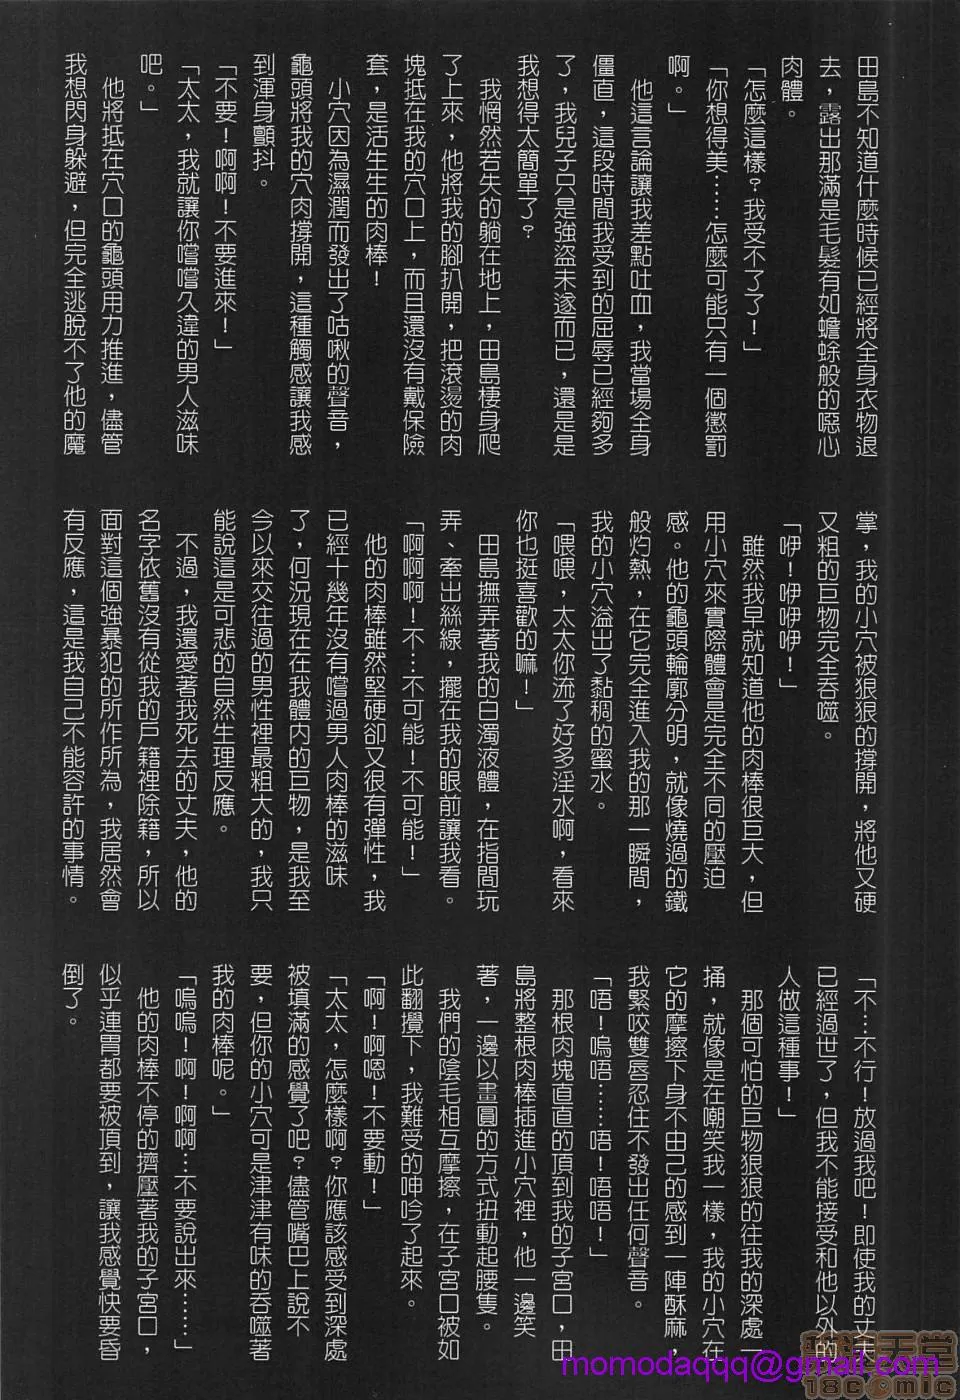 田島不知道什麼時候已經將全身衣物退
去，露出那滿是毛髮有如蟾蜍般的噁心
肉體。
「怎麼這樣？我受不了了！」
「你想得美……怎麼可能只有一個懲罰
啊。」
他這言論讓我差點吐血，我當場全身
僵直，這段時間我受到的屈辱已經夠多
了，我兒子只是強盜未遂而已，還是是
我想得太簡單了？
我惘然若失的躺在地上，田島棲身爬
了上來，他將我的腳扒開，把滾燙的肉
塊抵在我的穴口上，而且還沒有戴保險
套，是活生生的肉棒！
小穴因為濕潤而發出了咕啾的聲音，
龜頭將我的穴肉撐開，這種觸感讓我感
到渾身顫抖。
「不要！啊啊！不要進來！」
「太太，我就讓你嚐嚐久違的男人滋味
吧。」
他將抵在穴口的龜頭用力推進，儘管
我想閃身躲避，但完全逃脫不了他的魔
掌，我的小穴被狠狠的撐開，將他又硬
又粗的巨物完全吞噬。
「咿！咿咿咿！」
雖然我早就知道他的肉棒很巨大，但
用小穴來實際體會是完全不同的壓迫
感。他的龜頭輪廓分明，就像燒過的鐵
般灼熱，在它完全進入我的那一瞬間，
我的小穴溢出了黏稠的蜜水。
「喂喂，太太你流了好多淫水啊，看來
你也挺喜歡的嘛！」
田島撫弄著我的白濁液體，在指間玩
弄、牽出絲線，擺在我的眼前讓我看。
「啊啊啊！不…不可能！不可能！」
他的肉棒雖然堅硬卻又很有彈性，我
已經十幾年沒有嚐過男人肉棒的滋味
了，何況現在在我體內的巨物，是我至
今以來交往過的男性裡最粗大的，我只
能說這是可悲的自然生理反應。
不過，我還愛著我死去的丈夫，他的
名字依舊沒有從我的戶籍裡除籍，所以
面對這個強暴犯的所作所為，我居然會
有反應，這是我自己不能容許的事情。
「不…不行！放過我吧！即使我的丈夫
已經過世了，但我不能接受和他以外的
人做這種事！」
那個可怕的巨物狠狠的往我的深處一
捅，就像是在嘲笑我一樣，我的小穴在
它的摩擦下身不由己的感到一陣酥麻，
我緊咬雙唇忍住不發出任何聲音。
「唔！嗚唔……唔！唔唔！」
那根肉塊直直的頂到我的子宮口，田
島將整根肉棒插進小穴裡，他一邊笑
著，一邊以畫圓的方式扭動起腰隻。
我們的陰毛相互摩擦，在子宮口被如
此翻攪下，我難受的呻吟了起來。
「啊！啊嗯！不要動！」
「太太，怎麼樣啊？你應該感受到深處
被填滿的感覺了吧？儘管嘴巴上說不
要，但你的小穴可是津津有味的吞噬著
我的肉棒呢。」
「嗚嗚！啊！啊啊…不要說出來……」
他的肉棒不停的擠壓著我的子宮口，
似乎連胃都要被頂到，讓我感覺快要昏
倒了。
momodaqqq@gmail.com
18comic.com